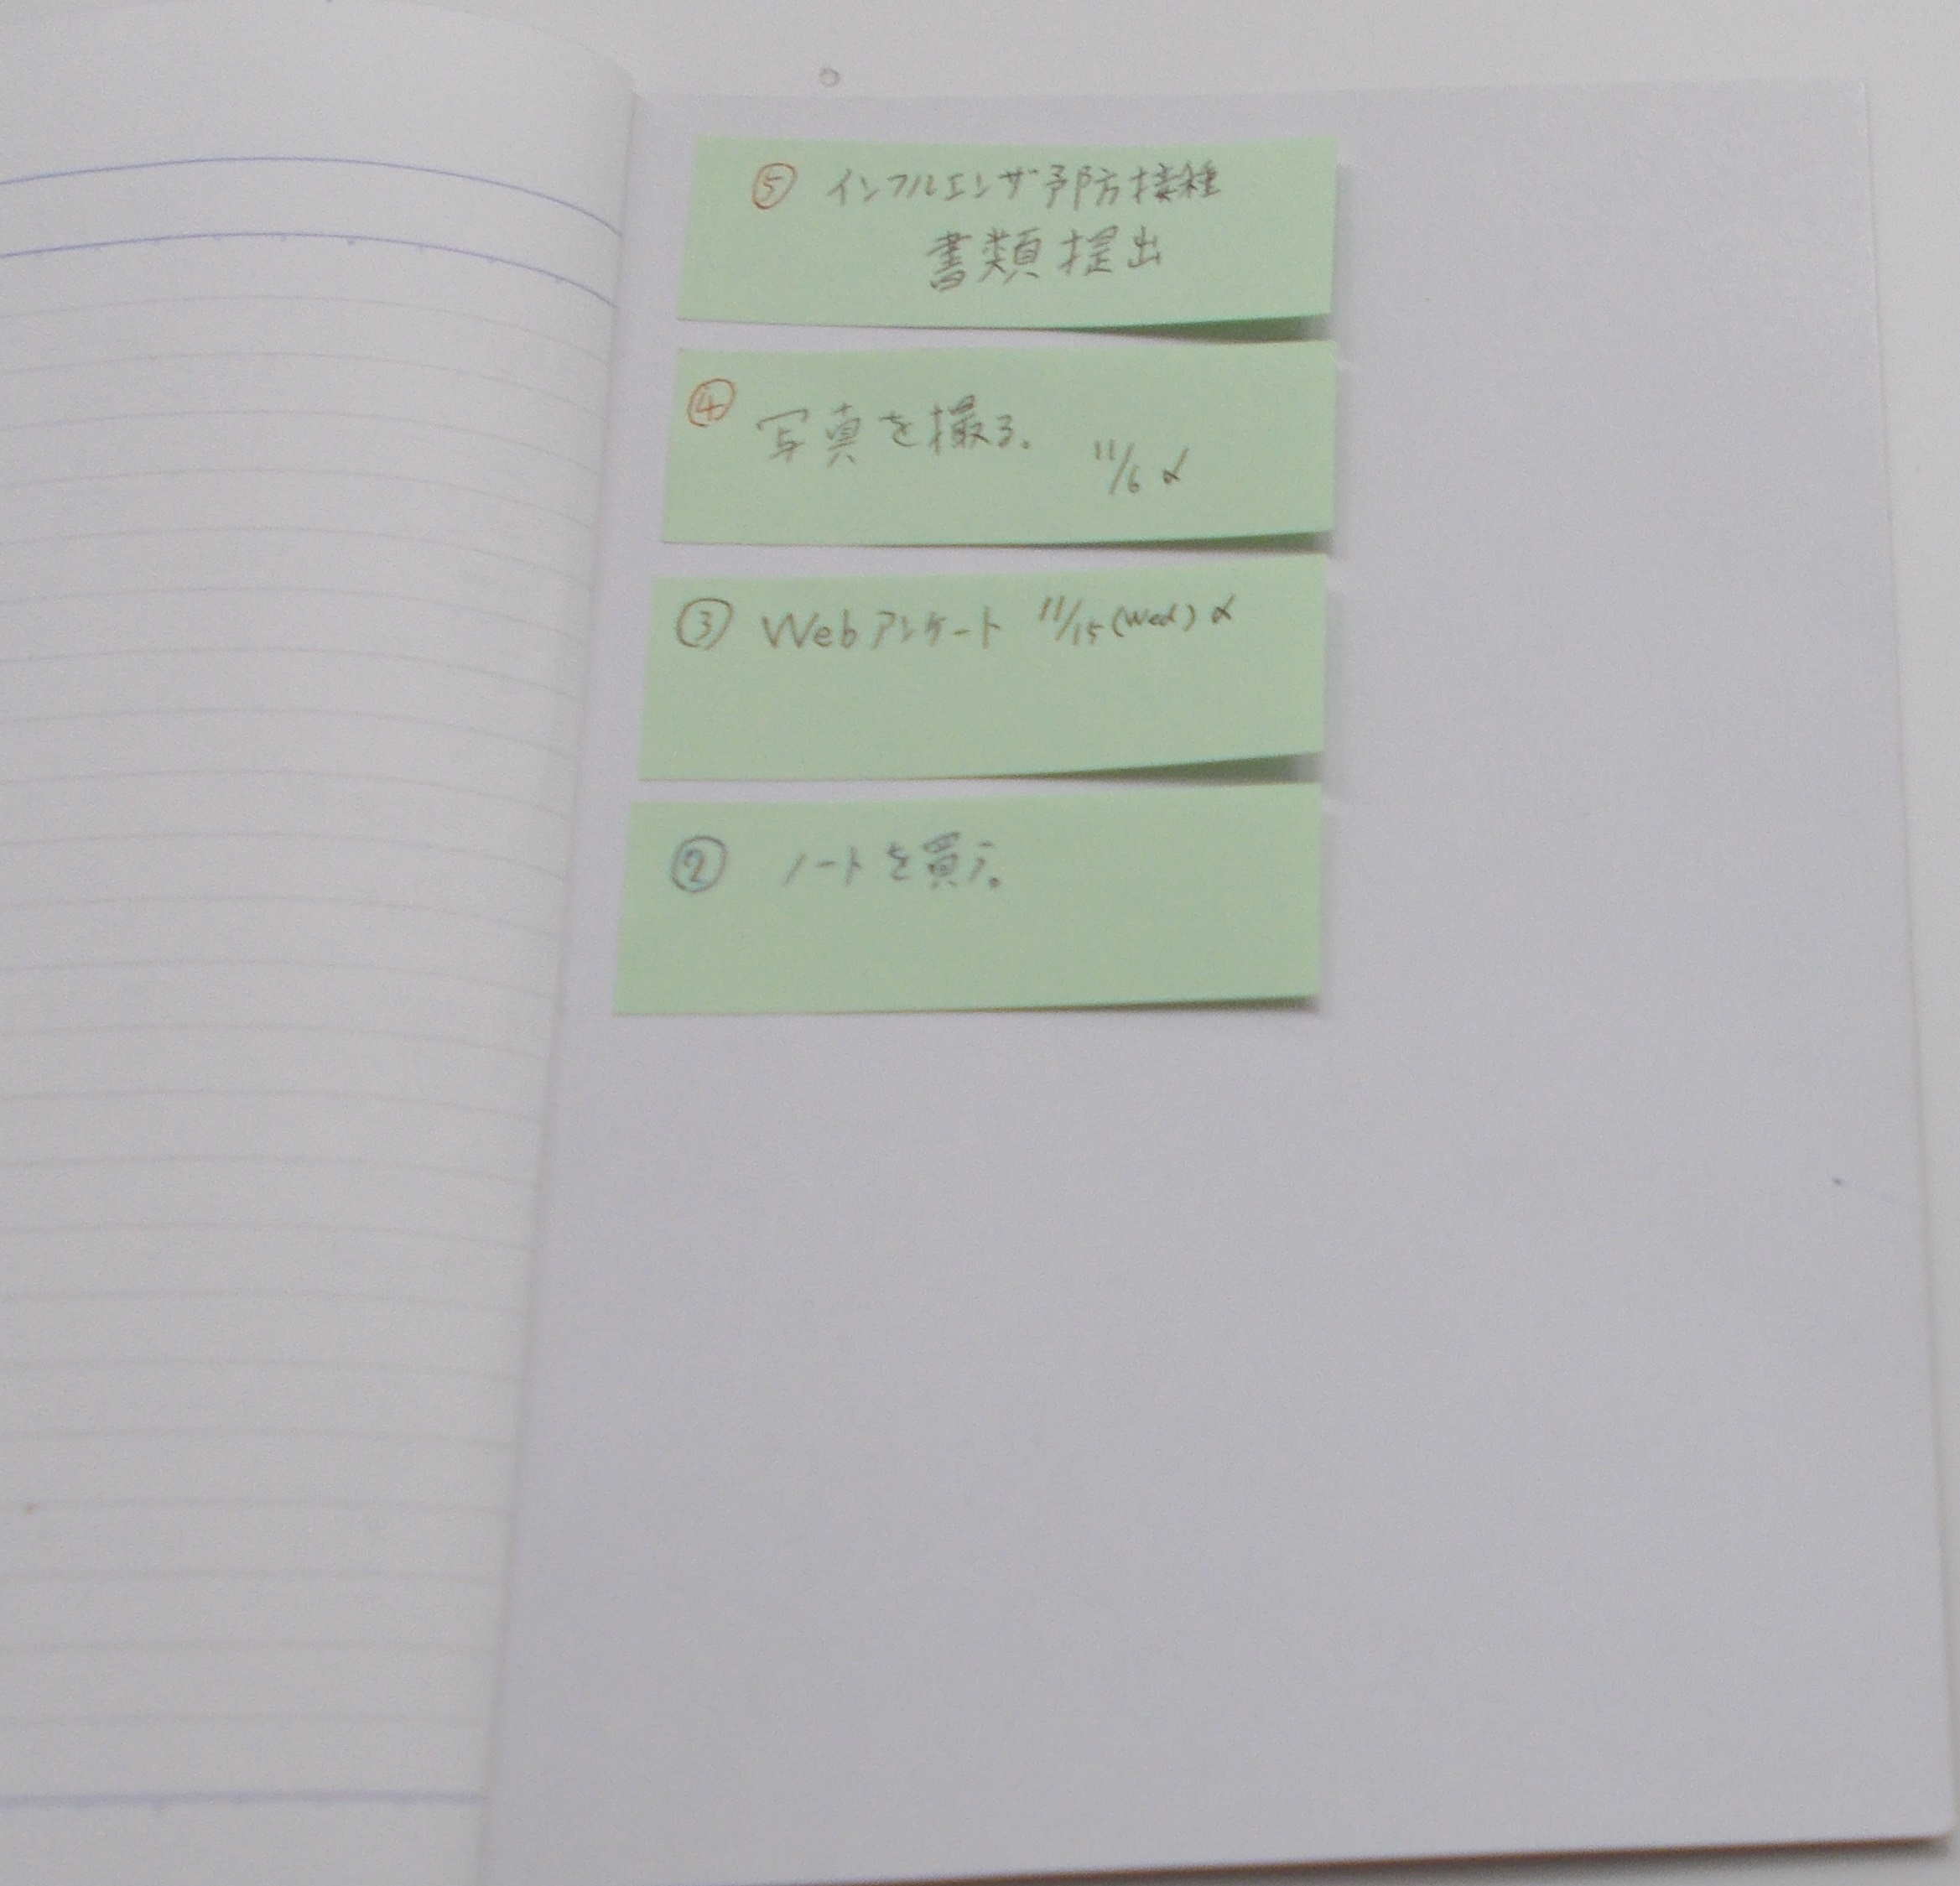 ⑤ インフルエンザ予防接種
書類提出
④ 写真を撮る。 11/6 〆
③ Webアンケート 11/15(Wed)〆
② ノートを買う。